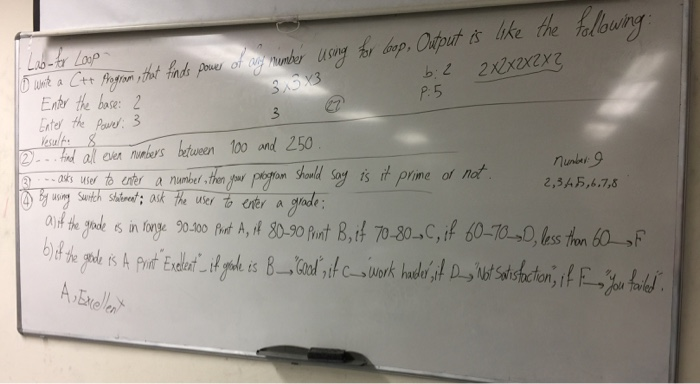 Lab-for Loop-
① Write a C++ Program, that finds power of any number using for loop, Output is like the following:
Enter the base: 2
Enter the Power: 3
Result: 8
3x3x3
3
27
b: 2 2x2x2x2x2
P: 5
② --- find all even numbers between 100 and 250.
③ --- asks user to enter a number, then your program should say is it prime or not.
number 9
2,3,4,5,6,7,8
④ By using Switch statement; ask the user to enter a grade:
a) if the grade is in range 90-100 Print A, if 80-90 Print B, if 70-80→C, if 60-70→D, less than 60→F
b) if the grade is A Print "Exellent", if grade is B→"Good", if C→"work harder", if D→"Not Satisfaction", if F→"You failed".
A, Excellent